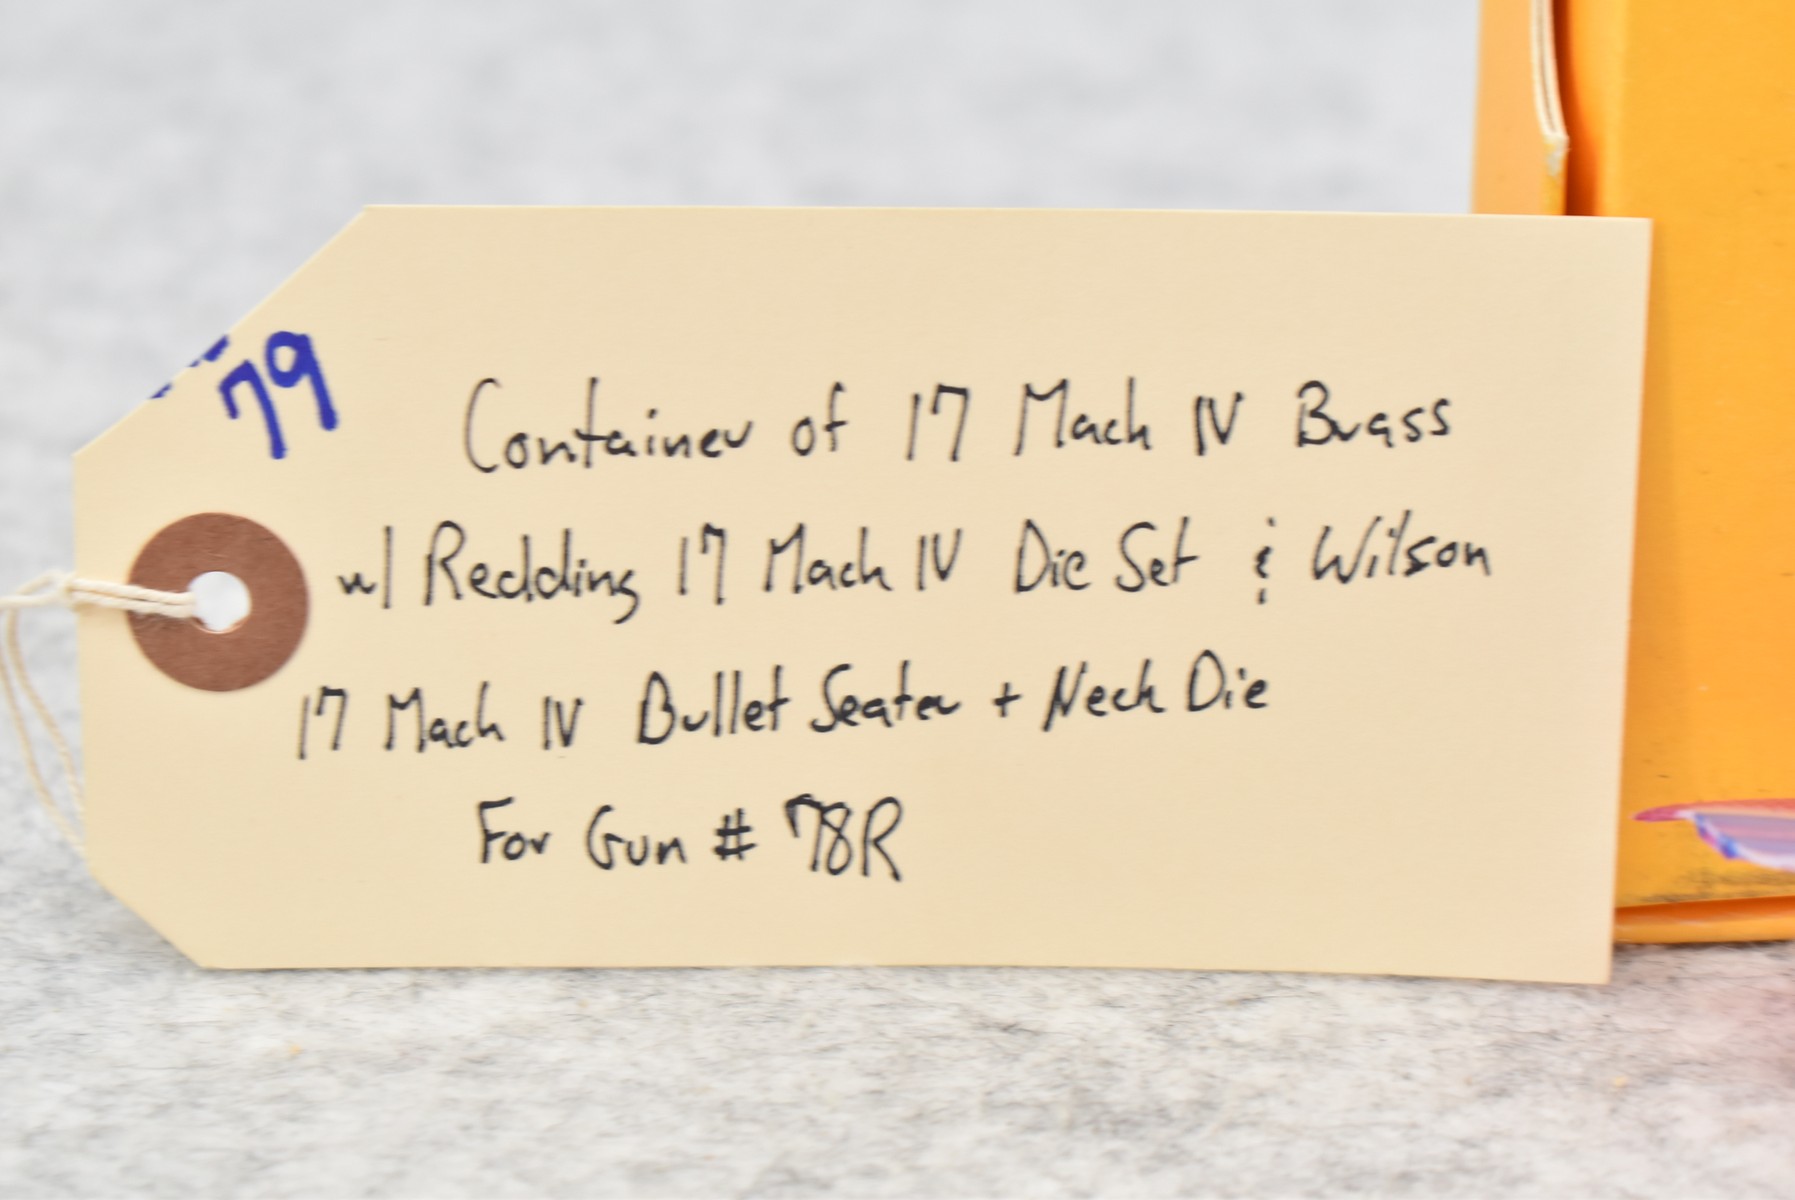 79
Container of 17 Mach IV Brass
w/ Redding 17 Mach IV Die Set & Wilson
17 Mach IV Bullet Seater + Neck Die
For Gun # 78R